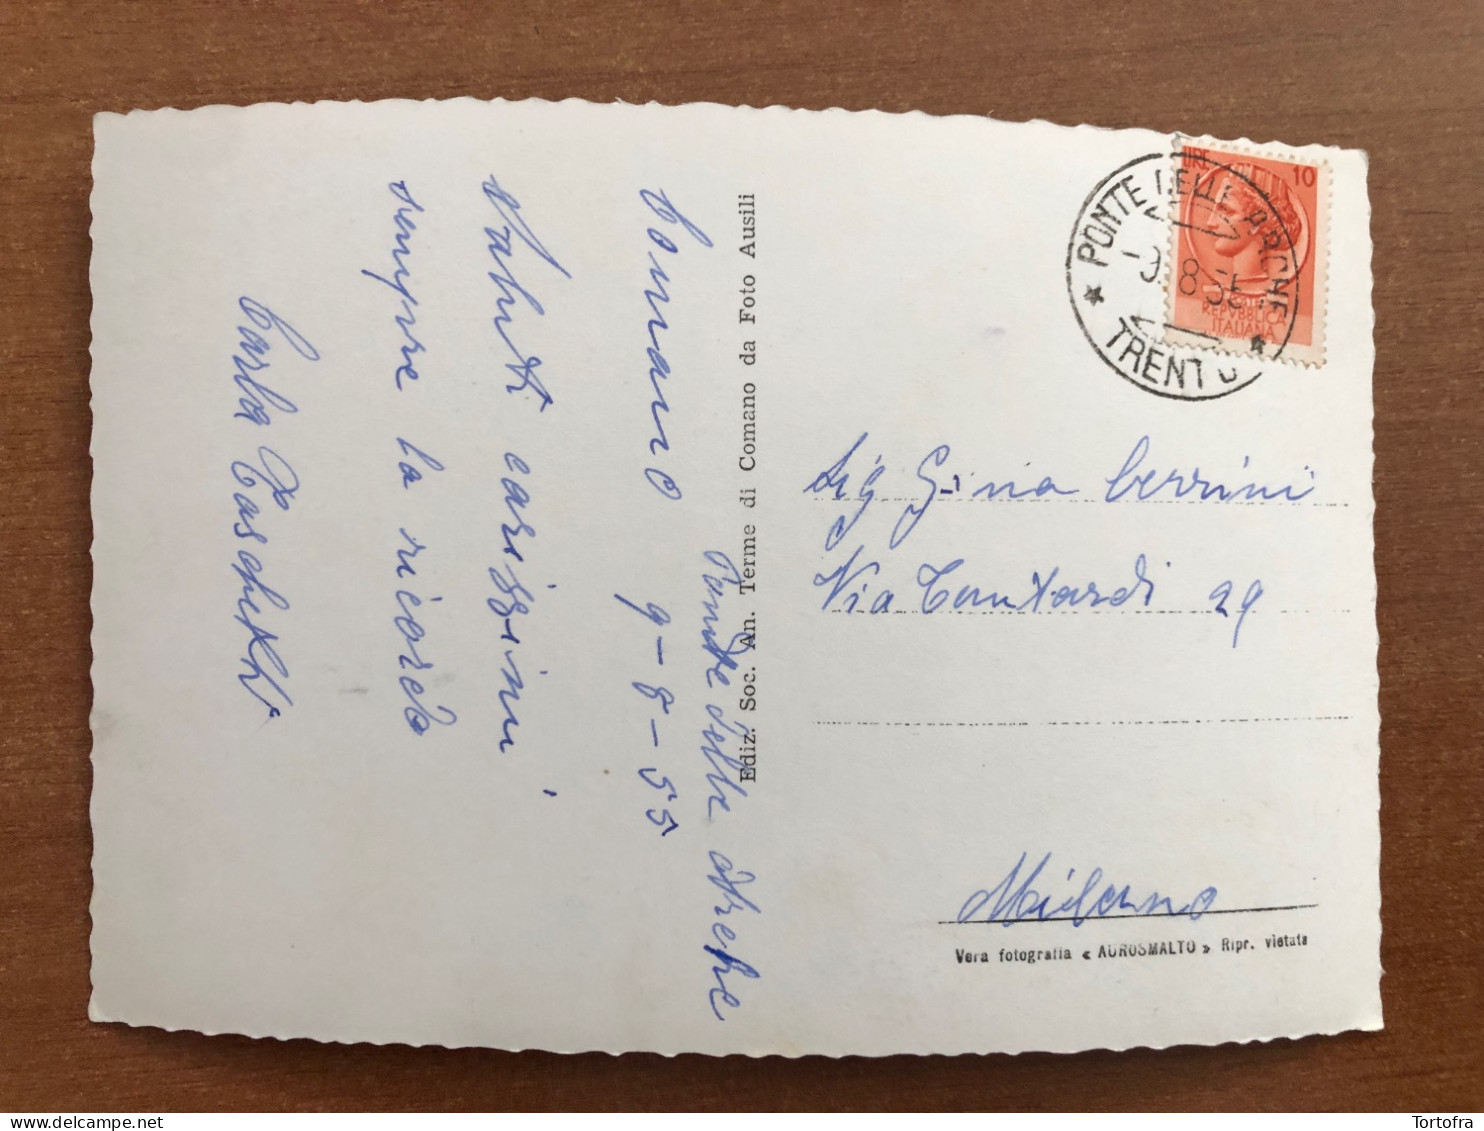 Ponte delle Arche
Comano 9-8-55
Saluti carissimi
sempre la ricordo
Carla
Ediz. Soc. An. Terme di Comano da Foto Ausili
PONTE DELLE ARCHE
-9.8.55
TRENTO
LIRE 10
REPVBBLICA
ITALIANA
Sig Gina Cerrini
Via Contardi 29
Milano
Vera fotografia « AUROSMALTO » Ripr. vietata
Tortofra